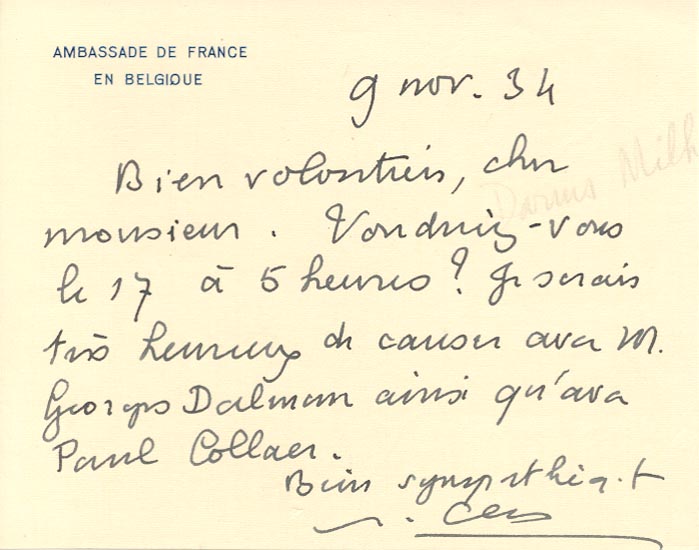 AMBASSADE DE FRANCE
EN BELGIQUE
9 nov. 34
Bien volontiers, cher
monsieur. Voudriez-vous
le 17 à 5 heures? Je serais
très heureux de causer avec M.
Georges Dalman ainsi qu'avec
Paul Collaer.
Bien sympathiq.t
Darius Milh